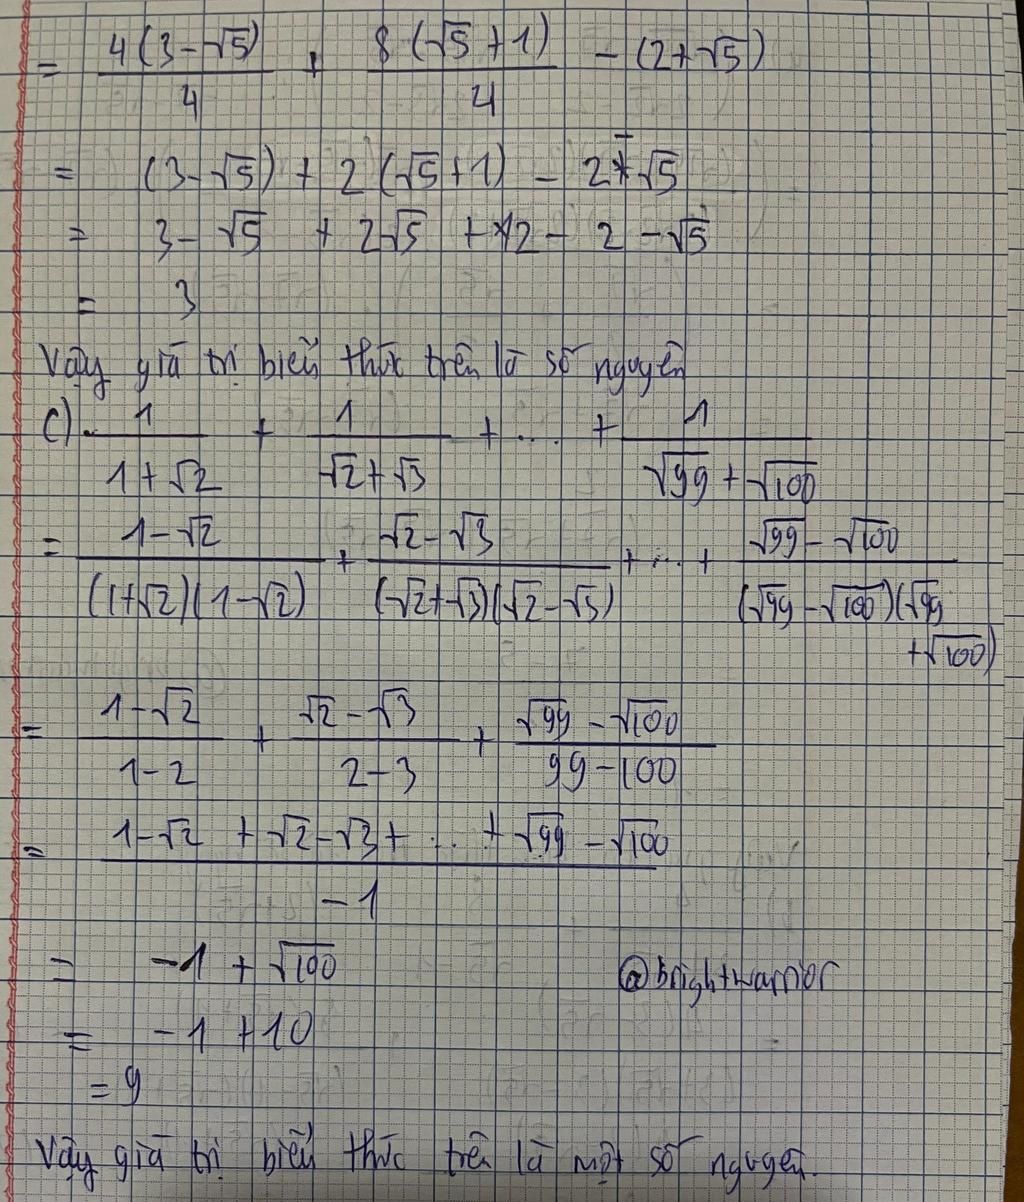 = 4(3-√5)/4 + 8(√5+1)/4 - (2+√5)
= (3-√5) + 2(√5+1) - 2-√5
= 3- √5 + 2√5 + 2 - 2 -√5
= 3
Vậy giá trị biểu thức trên là số nguyên
c). 1/(1+√2) + 1/(√2+√3) + ... + 1/(√99+√100)
= (1-√2)/((1+√2)(1-√2)) + (√2-√3)/((√2+√3)(√2-√3)) + ... + (√99-√100)/((√99-√100)(√99+√100))
= (1-√2)/(1-2) + (√2-√3)/(2-3) + (√99-√100)/(99-100)
= (1-√2+√2-√3+ ... +√99-√100)/(-1)
= -1 + √100
@brightwarrior
= -1 +10
= 9
Vậy giá trị biểu thức trên là một số nguyên.